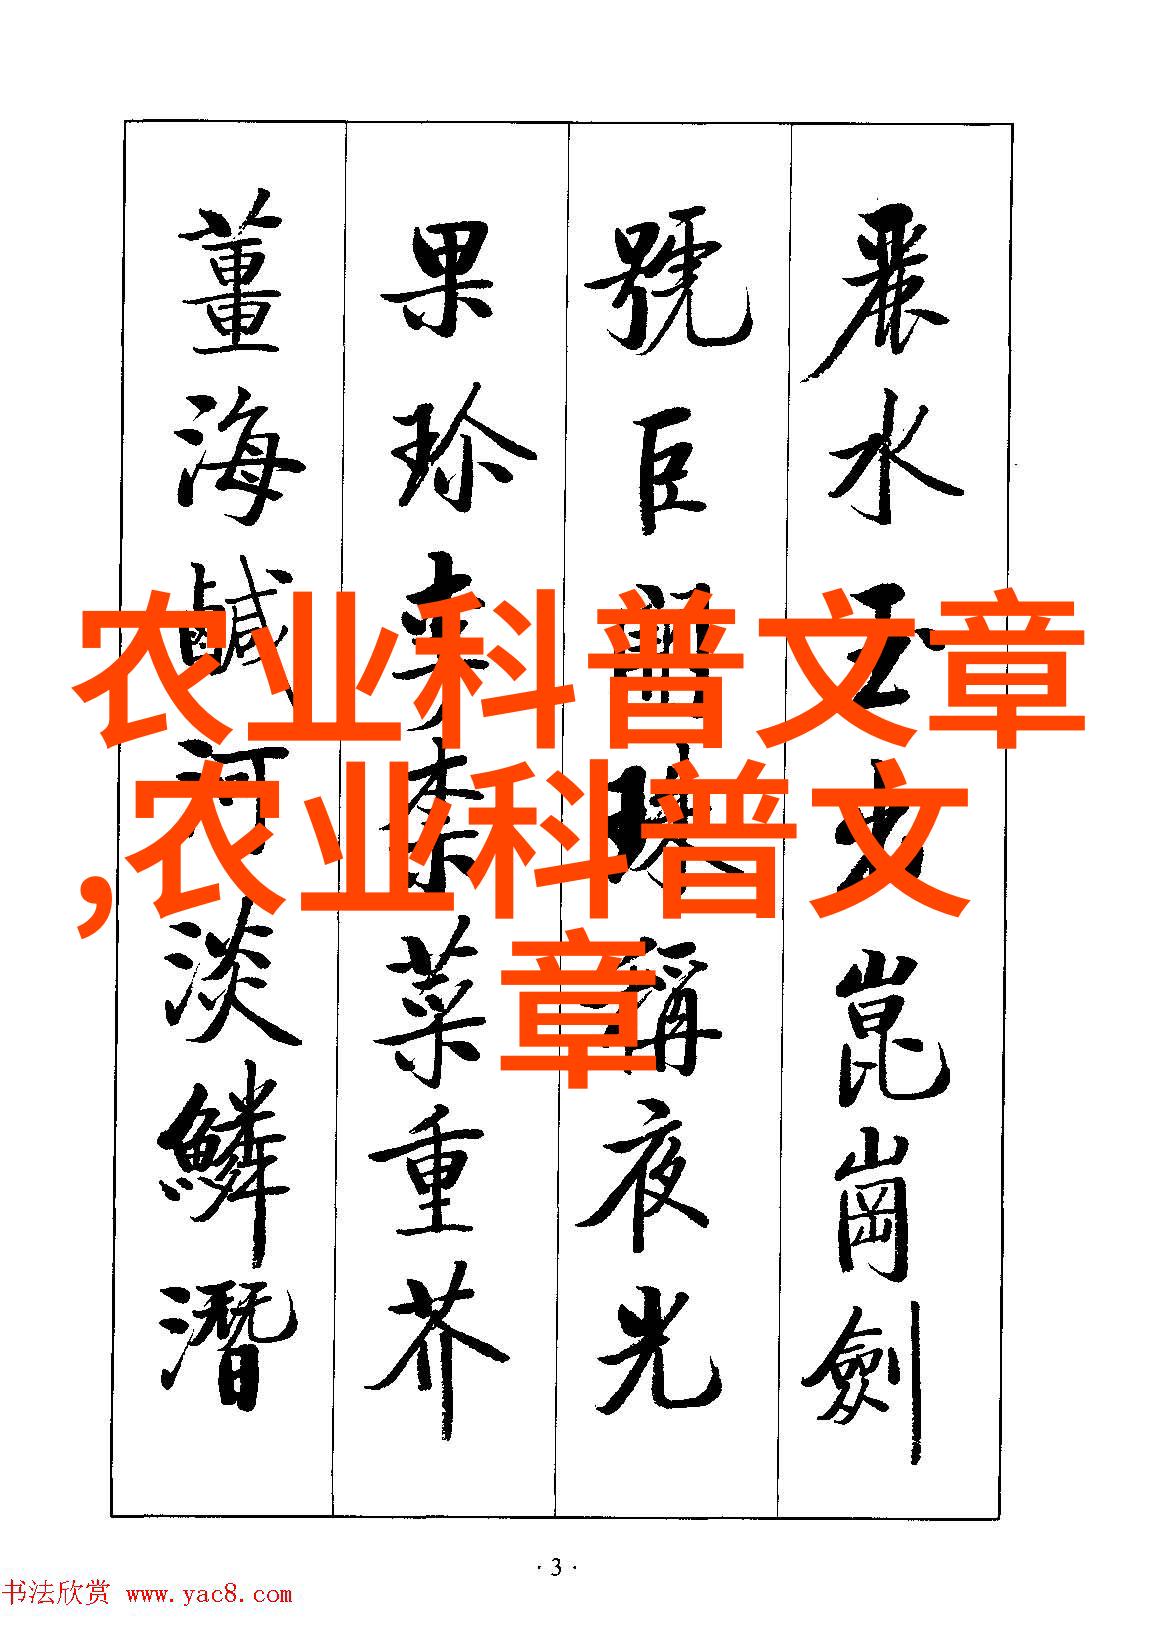 麗水玉出崑崗劍
號巨闕珠稱夜光
果珍柰菜重芥
薑海鹹河淡鱗潛
农业科普文章
,农业科普文
章
·3·
书法欣赏 www.yac8.com